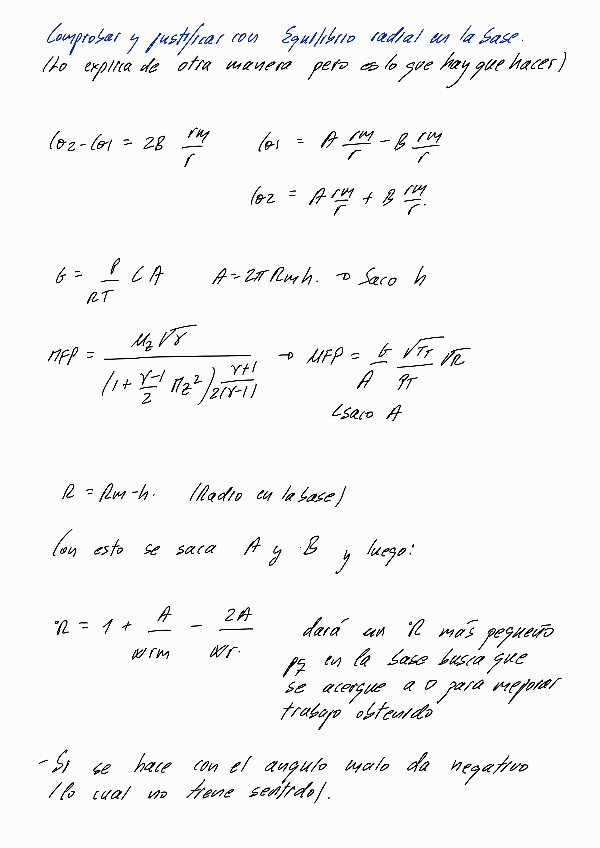 Comprobar y justificar con Equilibrio radial en la base.
(Lo explica de otra manera pero es lo que hay que hacer)
Cθ2 - Cθ1 = 2B rm/r   Cθ1 = A rm/r - B rm/r
Cθ2 = A rm/r + B rm/r.
G = P/RT C A   A = 2π Rm h. → Saco h
MFP = Mz √γ / (1 + γ-1/2 Mz²)^(γ+1/2(γ-1)) → MFP = G/A √TT/PT √R
↳ saco A
R = Rm - h. (Radio en la base)
Con esto se saca A y B y luego:
°R = 1 + A/wrm - 2A/wr.   dará un °R más pequeño
pq en la base busca que
se acerque a 0 para mejorar
trabajo obtenido
- Si se hace con el angulo malo da negativo
(lo cual no tiene sentido).